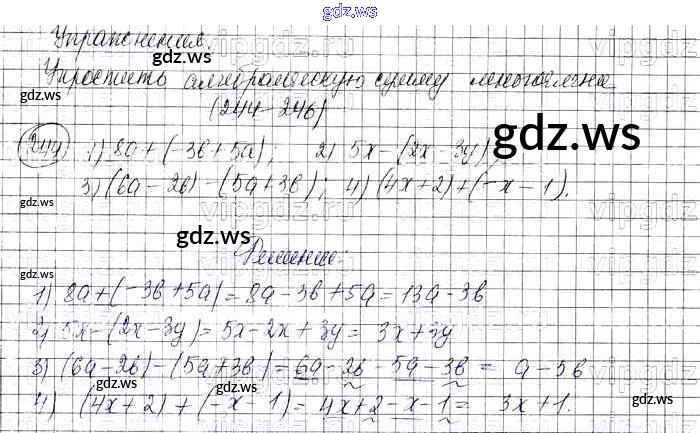 gdz.ws
Упражнения.
Упростить алгебраическую сумму многочлена
(244-246)
244) 1) 8a+(-3b+5a); 2) 5x-(2x-3y)
3) (6a-2b)-(5a+3b); 4) (4x+2)+(-x-1).
Решение:
1) 8a+(-3b+5a)=8a-3b+5a=13a-3b
2) 5x-(2x-3y)=5x-2x+3y=3x+3y
3) (6a-2b)-(5a+3b)=6a-2b-5a-3b=a-5b
4) (4x+2)+(-x-1)=4x+2-x-1=3x+1.
gdz.ws
gdz.ws
gdz.ws
gdz.ws
gdz.ws
gdz.ws
gdz.ws